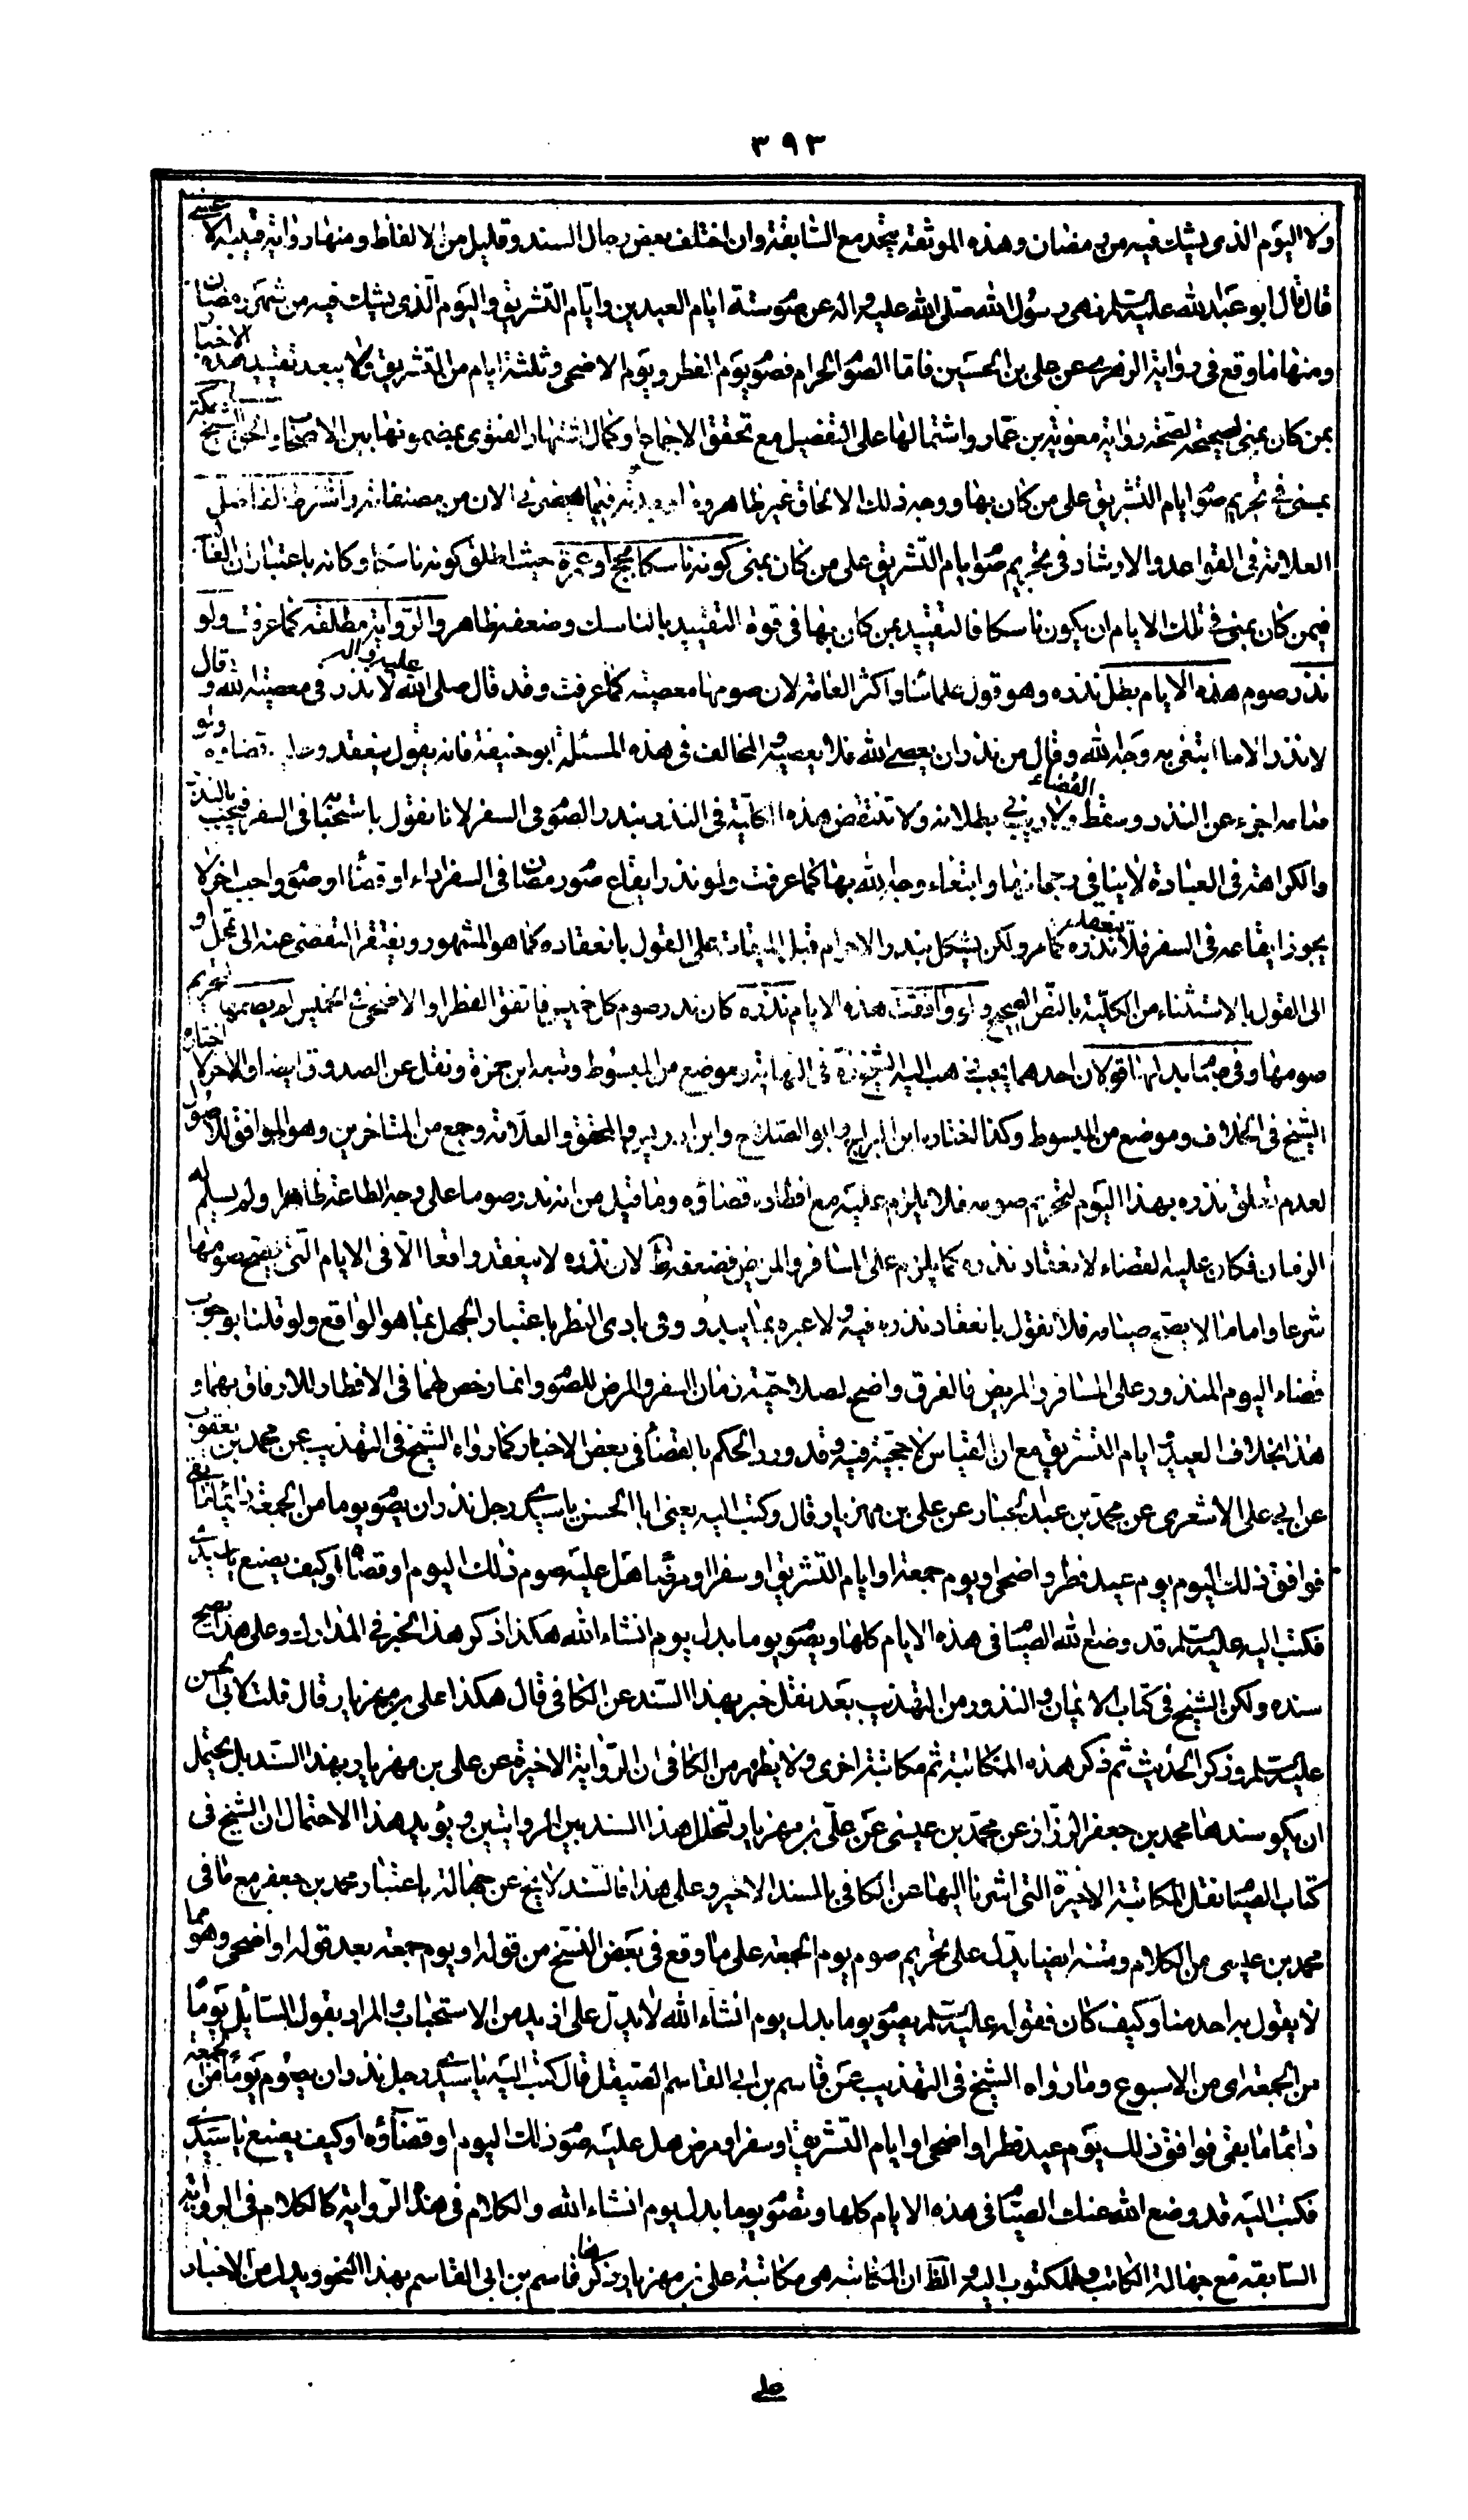 ٣٩٣
ولا اليوم الذى يشك فيه من رمضان وهذه الموثقة يتحد مع السّابقة وان اختلف بعض رجال السند وقليل من الالفاظ ومنها رواية قتيبة الاعشى
قال قال ابو عبد الله عليه السلم نهى رسول الله صلى الله عليه واله عن صوم ستة ايام العيدين وايام التشريق واليوم الذى يشك فيه من شهر رمضان
ومنها ما وقع فى رواية الزهرى عن على بن الحسين فاما الصوم الحرام فصوم يوم الفطر ويوم الاضحى وثلثة ايام من التشريق ولا يبعد تقييد هذه الاخبار
بمن كان بمنى لصحة رواية معوية بن عمار واشتمالها على التفصيل مع تحقق الاجماع او كمال اشتهار الفتوى بمضمونها بين الاصحاب والحق الشيخ مكة
بمنى فى تحريم صوم ايام التشريق على من كان بها ووجه ذلك الالحاق غير ظاهر فيما يحضرنى الان من مصنفاته واشترط الفاضل
العلامة فى القواعد والارشاد فى تحريم صوم ايام التشريق على من كان بمنى كونه ناسكا بحج او عمرة حيث اطلق كونه ناسكا وكانه باعتبار ان الغالب
فيمن كان بمنى فى تلك الايام ان يكون ناسكا فالتقييد بمن كان بها فى قوة التقييد بالناسك وضعفه ظاهر والرواية مطلقة كما عرفت ولو
نذر صوم هذه الايام بطل نذره وهو قول علمائنا واكثر العامة لان صومها معصية كما عرفت وقد قال صلى الله عليه واله لا نذر فى معصية الله وقال
لا نذر الا ما ابتغى به وجه الله وقال من نذر ان يعصى الله فلا يعصيه والمخالف فى هذه المسئلة ابو حنيفة فانه يقول ينعقد وعليه قضاؤه ولو
صامه اجزء عن النذر وسقط القضاء ولا ريب فى بطلانه ولا تنتقض هذه الكلية فى النذر بنذر الصوم فى السفر لانا نقول باستحبابه فى السفر فيجب بالنذر
والكراهة فى العبادة لا ينافى رجحانها وابتغاء وجه الله بها كما عرفت ولو نذر ايقاع صوم رمضان فى السفر اداء او قضاء او صوم واجب اخر لا
يجوز ايقاعه فى السفر فلا ينعقد نذره كما مر ولكن يشكل بنذر الاحرام قبل الميقات على القول بانعقاده كما هو المشهور ويفتقر التفصى عنه الى تمحل او
الى القول بالاستثناء من الكلية بالنص الصحيح ولو وافقت هذه الايام نذره كان نذر صوم كل خميس فاتفق الفطر او الاضحى فى الخميس لم يصمها لتحريم
صومها وفى صيام بدلها قولان احدهما يجب ذهب اليه الشيخ فى النهاية وموضع من المبسوط وتبعه ابن حمزة ونقل عن الصدوق ايضا والاخر لا اختاره
الشيخ فى الخلاف وموضع من المبسوط وكذا اختاره ابن البراج وابو الصلاح وابن ادريس والمحقق والعلامة وجمع من المتاخرين وهو الموافق للاصول
لعدم تعلق نذره بهذا اليوم لتحريم صومه فلا يلزم عليه مع افطاره قضاؤه وما قيل من انه نذر صوما على وجه الطاعة ظاهرا ولم يسلم له
الزمان فكان عليه القضاء لانعقاد نذره كما يلزم على المسافر والمريض فضعفه ظ لان نذره لا ينعقد واقعا الا فى الايام التى يصح صومها
شرعا واما ما لا يصح صيامه فلا نقول بانعقاد نذره فيه ولا عبرة بما يبدو وفى بادى النظر باعتبار الجهل بما هو الواقع ولو قلنا بوجوب
قضاء اليوم المنذور على المسافر والمريض فالفرق واضح لصلاحية زمان السفر والمرض للصوم وانما رخص لهما فى الافطار للارفاق بهما و
هذا بخلاف العيد وايام التشريق مع ان القياس لا حجية فيه وقد ورد الحكم بالقضاء فى بعض الاخبار كما رواه الشيخ فى التهذيب عن محمد بن يعقوب
عن ابى على الاشعرى عن محمد بن عبد الجبار عن على بن مهزيار قال وكتب اليه يعنى ابا الحسن يا سيدى رجل نذر ان يصوم يوما من الجمعة دائما ما بقى
فوافق ذلك اليوم يوم عيد فطر او اضحى او يوم جمعة او ايام التشريق او سفر او مرض هل عليه صوم ذلك اليوم او قضائه او كيف يصنع يا سيدى
فكتب اليه عليه السلم قد وضع الله الصيام فى هذه الايام كلها ويصوم يوما بدل يوم انشاء الله هكذا ذكر هذا الخبر فى المدارك وعلى هذا يصح
سنده ولكن الشيخ فى كتاب الايمان والنذور من التهذيب بعد نقل خبر بهذا السند عن الكافى قال هكذا على بن مهزيار قال قلت لابى الحسن
عليه السلم وذكر الحديث ثم ذكر هذه المكاتبة ثم مكاتبة اخرى ولا يظهر من الكافى ان الرواية الاخيرة عن على بن مهزيار بهذا السند بل يحتمل
ان يكون سندهما محمد بن جعفر الرزاز عن محمد بن عيسى عن على بن مهزيار لتخلل هذا السند بين الروايتين ويؤيد هذا الاحتمال ان الشيخ فى
كتاب الصيام نقل المكاتبة الاخيرة التى اشرنا اليها عن الكافى بالسند الاخير وعلى هذا فالسند لا يخ عن جهالة باعتبار محمد بن جعفر مع ما فى
محمد بن عيسى من الكلام ومتنه ايضا يدل على تحريم صوم يوم الجمعة على ما وقع فى بعض النسخ من قوله او يوم جمعة بعد قوله او اضحى وهو مما
لا يقول به احد منا وكيف كان فقوله عليه السلم يصوم يوما بدل يوم انشاء الله لا يدل على ازيد من الاستحباب والمراد بقول السائل يوما
من الجمعة اى من الاسبوع وما رواه الشيخ فى التهذيب عن قاسم بن ابى القاسم الصيقل قال كتب اليه يا سيدى رجل نذر ان يصوم يوما من الجمعة
دائما ما بقى فوافق ذلك يوم عيد فطر او اضحى او ايام التشريق او سفر او مرض هل عليه صوم ذلك اليوم او قضاؤه او كيف يصنع يا سيدى
فكتب اليه قد وضع الله عنك الصيام فى هذه الايام كلها وتصوم يوما بدل يوم انشاء الله والكلام فى هذه الرواية كالكلام فى الرواية
السابقة مع جهالة الكاتب والمكتوب اليه والظ ان المكاتبة هى مكاتبة على بن مهزيار ذكرها قاسم بن ابى القاسم بهذا النحو ويدل من الاخبار